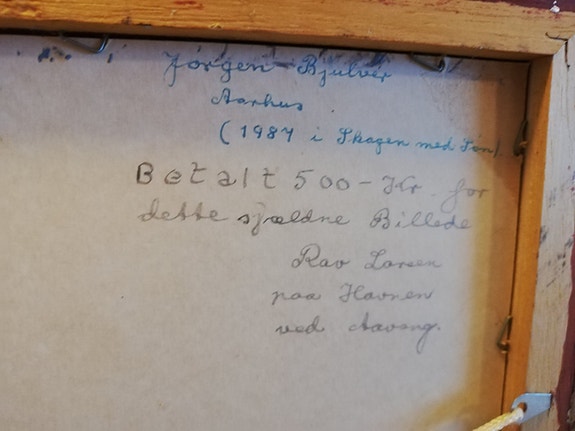 Jørgen Bjulver
Aarhus
(1987 i Skagen med Søn).
Betalt 500 - Kr. for
dette sjældne Billede
Rav Larsen
paa Havnen
ved Aavang.